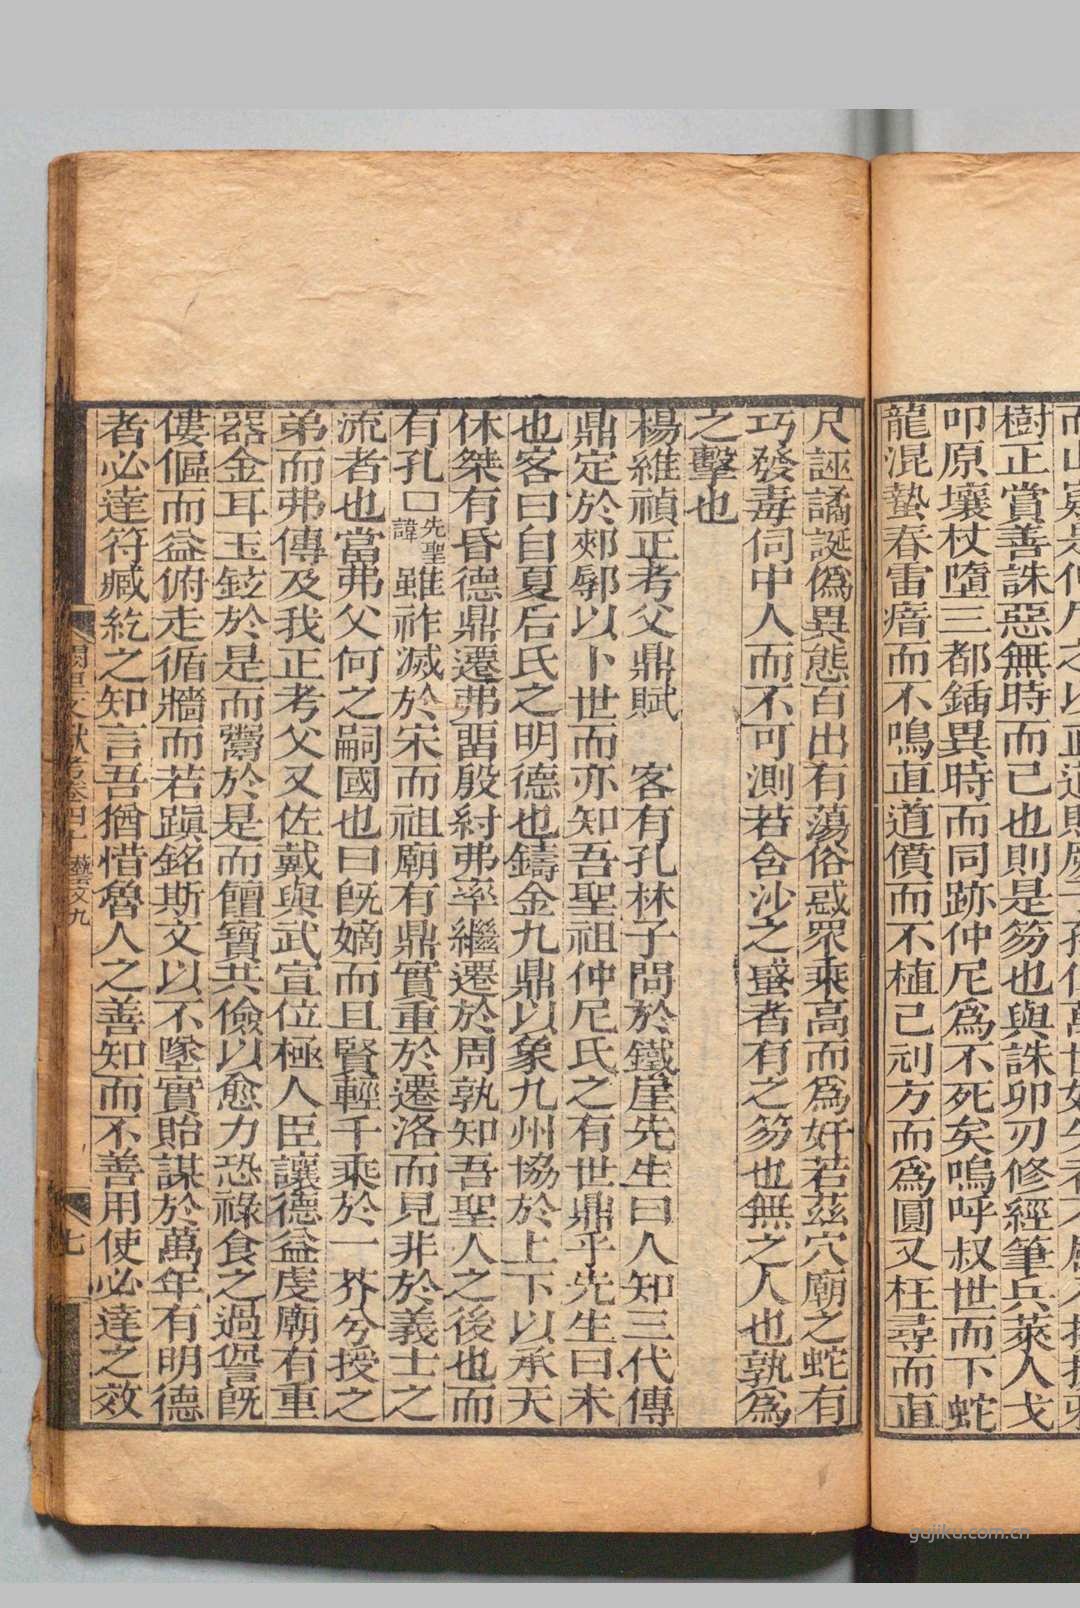 樹正賞善誅惡無時而已也則是笏也與誅卯刃修經筆兵萊人戈
叩原壤杖墮三都鍤異時而同跡仲尼爲不死矣嗚呼叔世而下蛇
龍混蟄春雷瘖而不鳴直道僨而不植已刓方而爲圓又枉尋而直
尺誣譎誕僞異態百出有蕩俗惑眾乘高而爲奸若茲穴廟之蛇有
巧發毒伺中人而不可測若含沙之蜮者有之笏也無之人也孰爲
之擊也
楊維禎正考父鼎賦 客有孔林子問於鐵崖先生曰人知三代傳
鼎定於郟鄏以卜世而亦知吾聖祖仲尼氏之有世鼎乎先生曰未
也客曰自夏后氏之明德也鑄金九鼎以象九州協於上下以承天
休桀有昏德鼎遷弗畱殷紂弗率繼遷於周孰知吾聖人之後也而
有孔口先聖諱雖祚滅於宋而祖廟有鼎實重於遷洛而見非於義士之
流者也當弗父何之嗣國也曰旣嫡而且賢輕千乘於一芥兮授之
弟而弗傳及我正考父又佐戴與武宣位極人臣讓德益虔廟有重
器金耳玉鉉於是而鬻於是而饘寶共儉以愈力恐祿食之過諐旣
僂傴而益俯走循牆而若蹎銘斯文以不墜實貽謀於萬年有明德
者必達符臧紇之知言吾猶惜魯人之善知而不善用使必達之效
闕里文獻考卷四十 藝文九
七
gujiku.com.cn